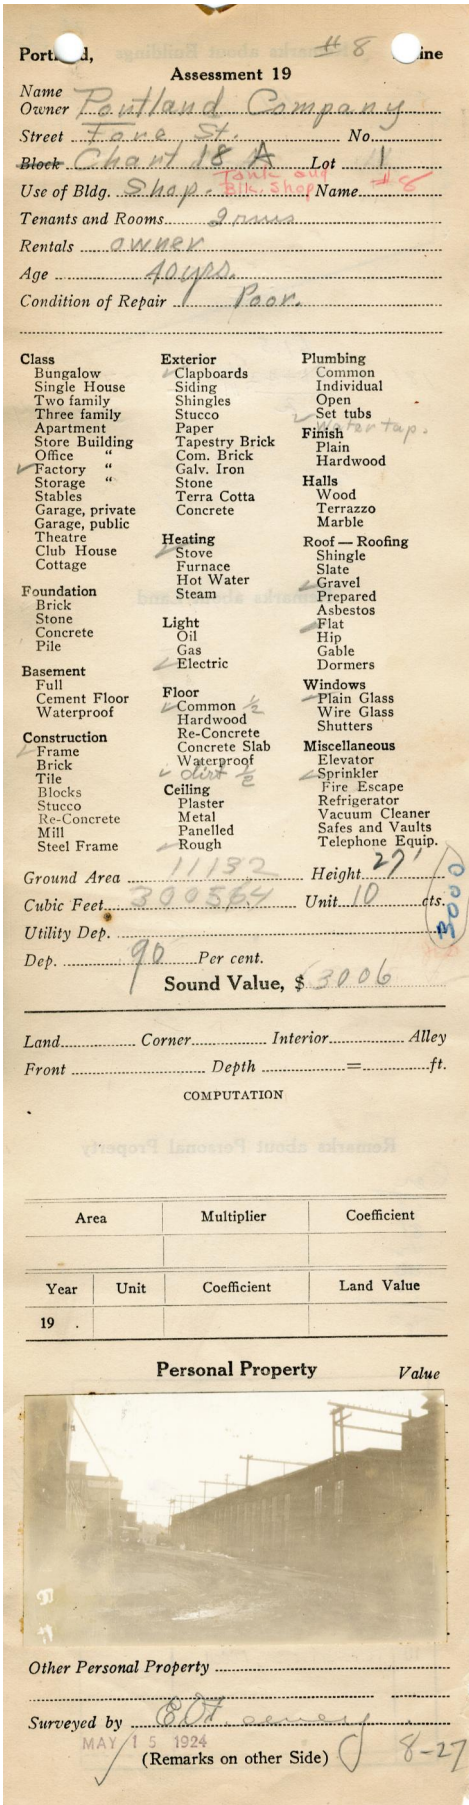 # 8
Portland, Maine
Assessment 19
Name
Owner Portland Company
Street Fore St. No.
Block Chart 18 A Lot 1
Tank and
Use of Bldg. Shop. Blk. Shop Name #8
Tenants and Rooms 2 rms
Rentals owner
Age 40 yrs.
Condition of Repair Poor.
Class
Bungalow
Single House
Two family
Three family
Apartment
Store Building
Office "
Factory "
Storage "
Stables
Garage, private
Garage, public
Theatre
Club House
Cottage
Foundation
Brick
Stone
Concrete
Pile
Basement
Full
Cement Floor
Waterproof
Construction
Frame
Brick
Tile
Blocks
Stucco
Re-Concrete
Mill
Steel Frame
Exterior
Clapboards
Siding
Shingles
Stucco
Paper
Tapestry Brick
Com. Brick
Galv. Iron
Stone
Terra Cotta
Concrete
Heating
Stove
Furnace
Hot Water
Steam
Light
Oil
Gas
Electric
Floor
Common ½
Hardwood
Re-Concrete
Concrete Slab
Waterproof
dirt ½
Ceiling
Plaster
Metal
Panelled
Rough
Plumbing
Common
Individual
Open
Set tubs
Water tap.
Finish
Plain
Hardwood
Halls
Wood
Terrazzo
Marble
Roof — Roofing
Shingle
Slate
Gravel
Prepared
Asbestos
Flat
Hip
Gable
Dormers
Windows
Plain Glass
Wire Glass
Shutters
Miscellaneous
Elevator
Sprinkler
Fire Escape
Refrigerator
Vacuum Cleaner
Safes and Vaults
Telephone Equip.
Ground Area 11132 Height 27'
Cubic Feet 300564 Unit 10 cts.
3000
Utility Dep.
Dep. 90 Per cent.
Sound Value, $ 3006
Land Corner Interior Alley
Front Depth = ft.
COMPUTATION
Area Multiplier Coefficient
Year Unit Coefficient Land Value
19 .
Personal Property Value
Other Personal Property
Surveyed by
MAY 15 1924
(Remarks on other Side) 8-27